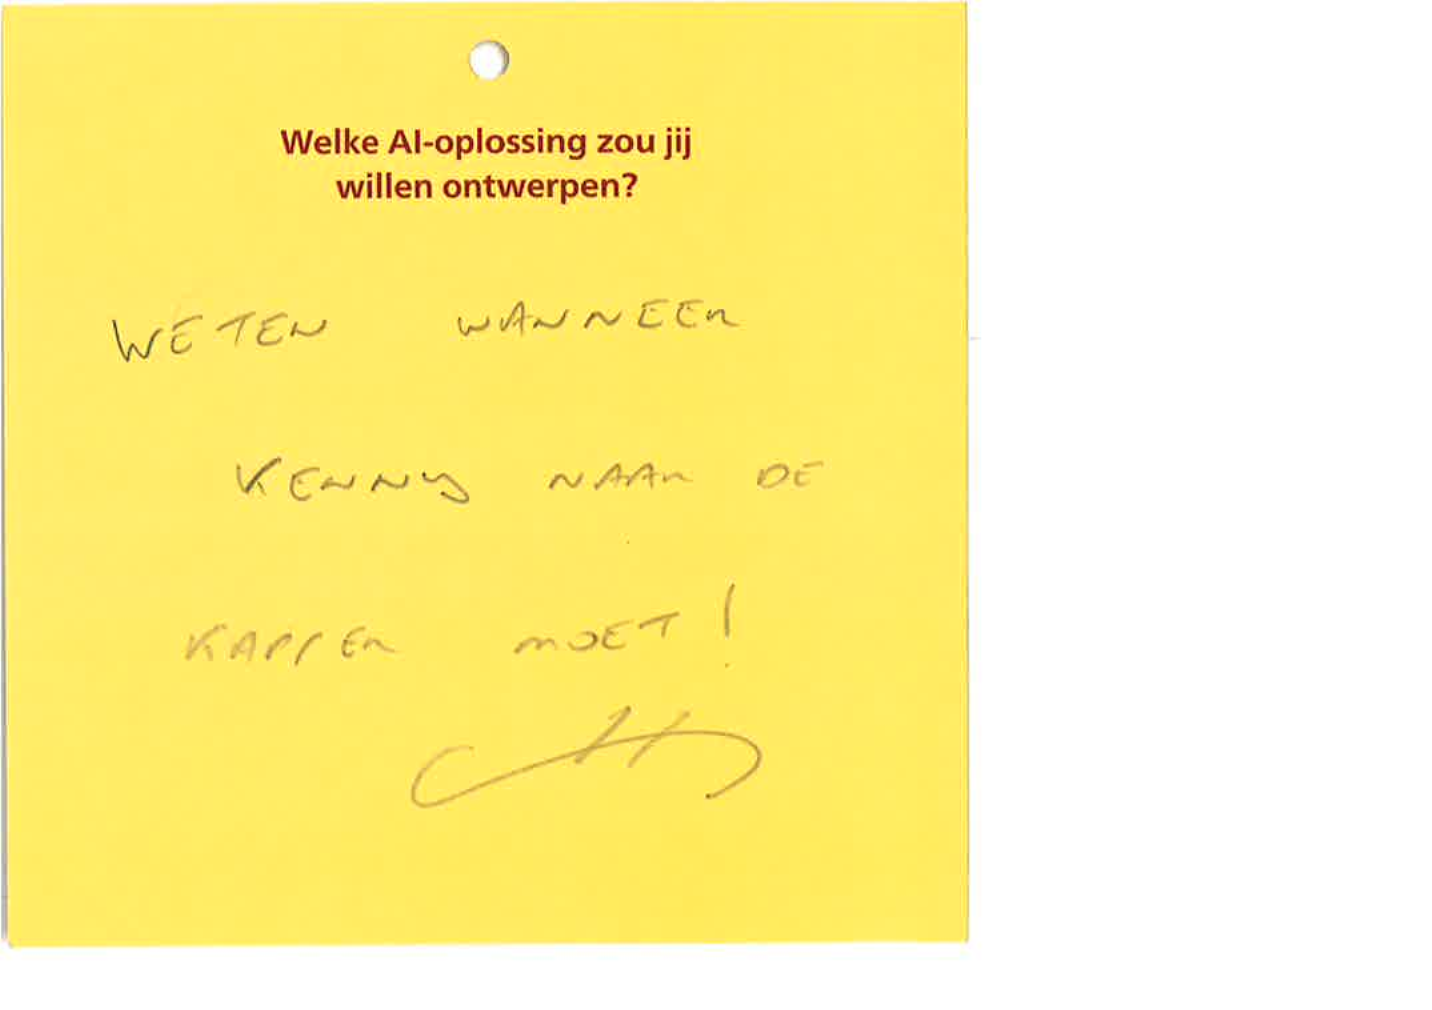 Welke AI-oplossing zou jij
willen ontwerpen?
WETEN WANNEER
KENNY NAAR DE
KAPPER MOET!